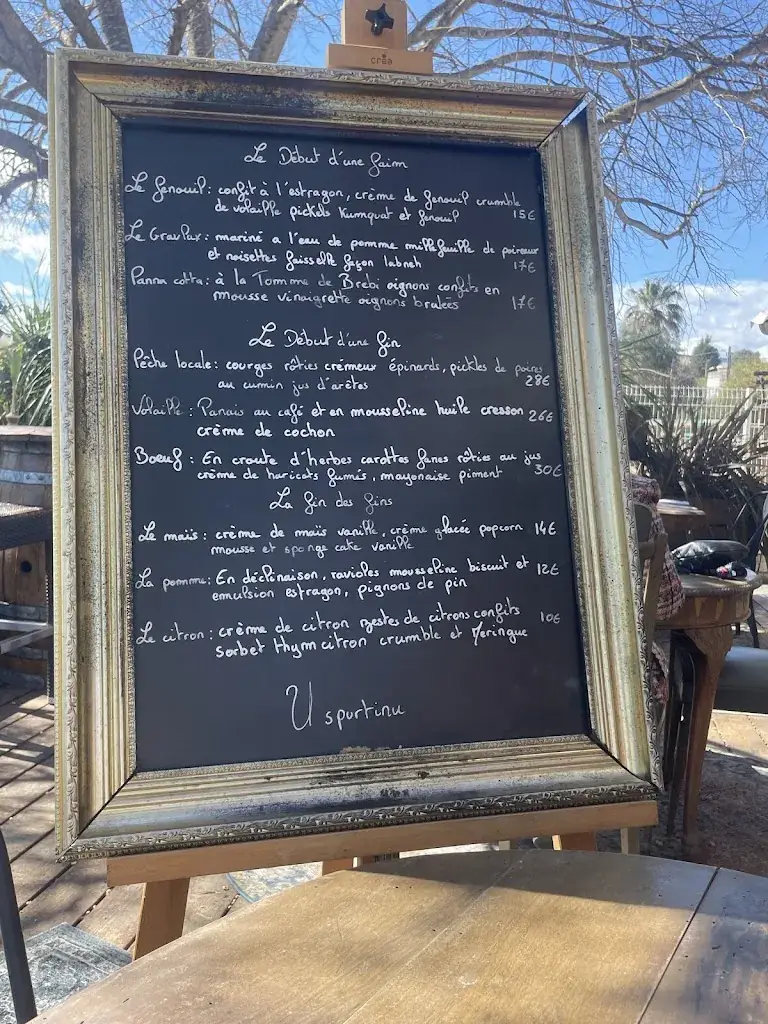 créa
Le Début d'une faim
Le fenouil : confit à l'estragon, crème de fenouil crumble
de volaille pickels Kumquat et fenouil 15€
Le Gravlax : mariné a l'eau de pomme millefeuille de poireaux
et noisettes faisselle façon labneh 17€
Panna cotta : à la Tomme de Brebi oignons confits en
mousse vinaigrette oignons brulées 17€
Le Début d'une fin
Pêche locale : courges rôties crémeux épinards, pickles de poires
au cumin jus d'arêtes 28€
Volaille : Panais au café et en mousseline huile cresson 26€
crème de cochon
Boeuf : En croute d'herbes carottes fanes rôties au jus
crème de haricots fumés, mayonaise piment 30€
La fin des fins
Le maïs : crème de maïs vanille, crème glacée popcorn 14€
mousse et sponge cake vanille
La pomme : En déclinaison, ravioles mousseline biscuit et 12€
emulsion estragon, pignons de pin
Le citron : crème de citron zestes de citrons confits 10€
sorbet thym citron crumble et Meringue
U spurtinu